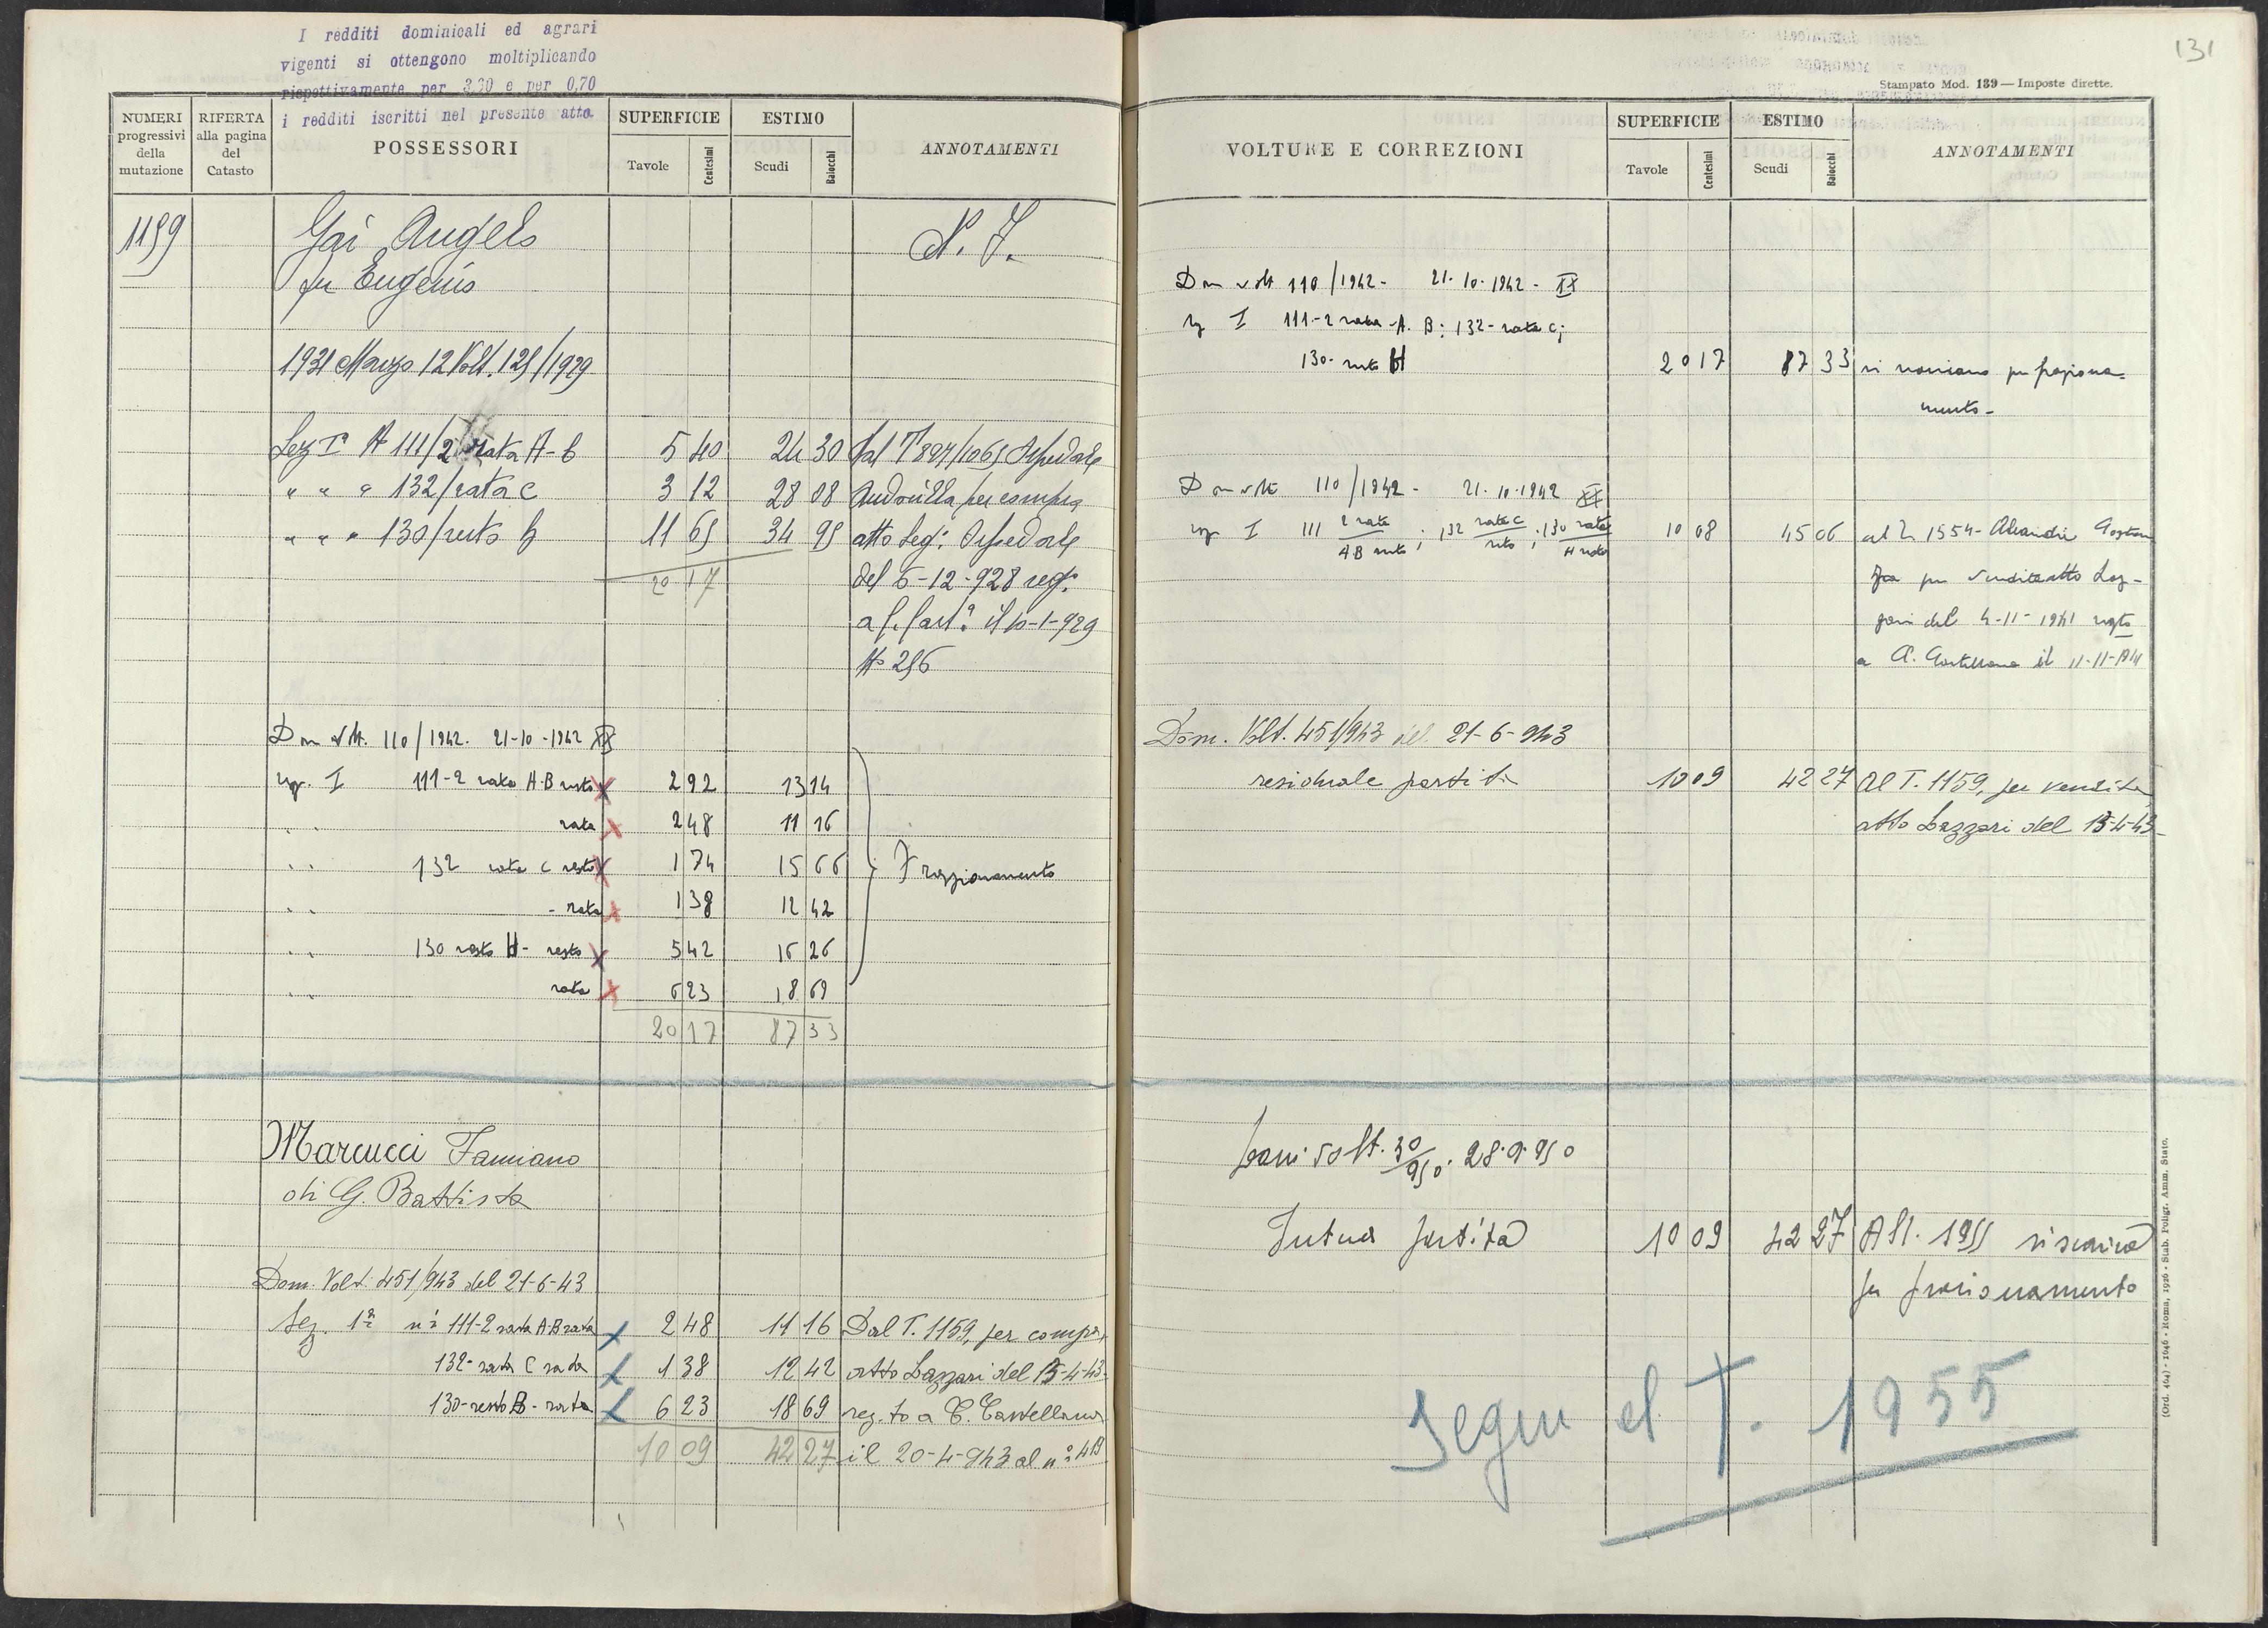 I redditi dominicali ed agrari
vigenti si ottengono moltiplicando
rispettivamente per 3,30 e per 0,70
i redditi iscritti nel presente atto.
NUMERI progressivi della mutazione
RIFERTA alla pagina del Catasto
POSSESSORI
SUPERFICIE
Tavole Centesimi
ESTIMO
Scudi Baiocchi
ANNOTAMENTI
1159
Gai Angelo
fu Eugenio
N. T.
1931 Marzo 12 Volt. 125/1929
Sez Iª A 111/2 rata A-b 5 40 24 30 Dal T 894/1065 Ospedale
" " " 132/rata c 3 12 28 08 per compra
" " " 130/resto b 11 65 34 95 atto Seg: Ospedale
20 17 del 5-12-928 reg:
il 10-1-929
No 256
Dom Volt. 110/1942. 21-10-1942 XX
Sez. I 111-2 rata A-B resto X 2 92 13 14
" " rata X 2 48 11 16
" " 132 rata C resto X 1 74 15 66 Frazionamento
" " - rata X 1 38 12 42
" " 130 resto H - resto X 5 42 16 26
" " rata X 6 23 18 69
20 17 87 33
Marcucci Famiano
di G. Battista
Dom. Volt. 451/943 del 21-6-43
Sez. 1ª ni 111-2 rata A-B rata X 2 48 11 16 Dal T. 1159, per compra,
132-rata C rata X 1 38 12 42 atto Lazzari del 15-4-43.
130-resto B-rata X 6 23 18 69 reg.to a C. Castellana
10 09 42 27 il 20-4-943 al n° 419
131
Stampato Mod. 139 — Imposte dirette.
VOLTURE E CORREZIONI
SUPERFICIE
Tavole Centesimi
ESTIMO
Scudi Baiocchi
ANNOTAMENTI
Dom volt 110/1942 - 21-10-1942 - XX
Sez I 111-2 rata A. B; 132-rata c;
130-resto H 20 17 87 33 si variano per faziona-
mento -
Dom volt 110/1942 - 21-10-1942 XX
Sez I 111 2 rata / AB resto ; 132 rata C / resto ; 130 rata / H resto 10 08 45 06 al T. 1554-
per vendita atto Laz-
zari del 4-11-1941 regto
a C. Castellana il 11-11-1941
Dom. Volt. 451/943 del 21-6-943
residuale partita 10 09 42 27 Al T. 1159, per vendita
atto Lazzari del 15-4-43
Dom Volt. 30/950. 28-9-950
Intera partita 10 09 42 27 Al T. 1955 si scarica
per frazionamento
Segue al T. 1955
(Ord. 464) - 1646 - Roma, 1926 - Stab. Poligr. Amm. Stato.